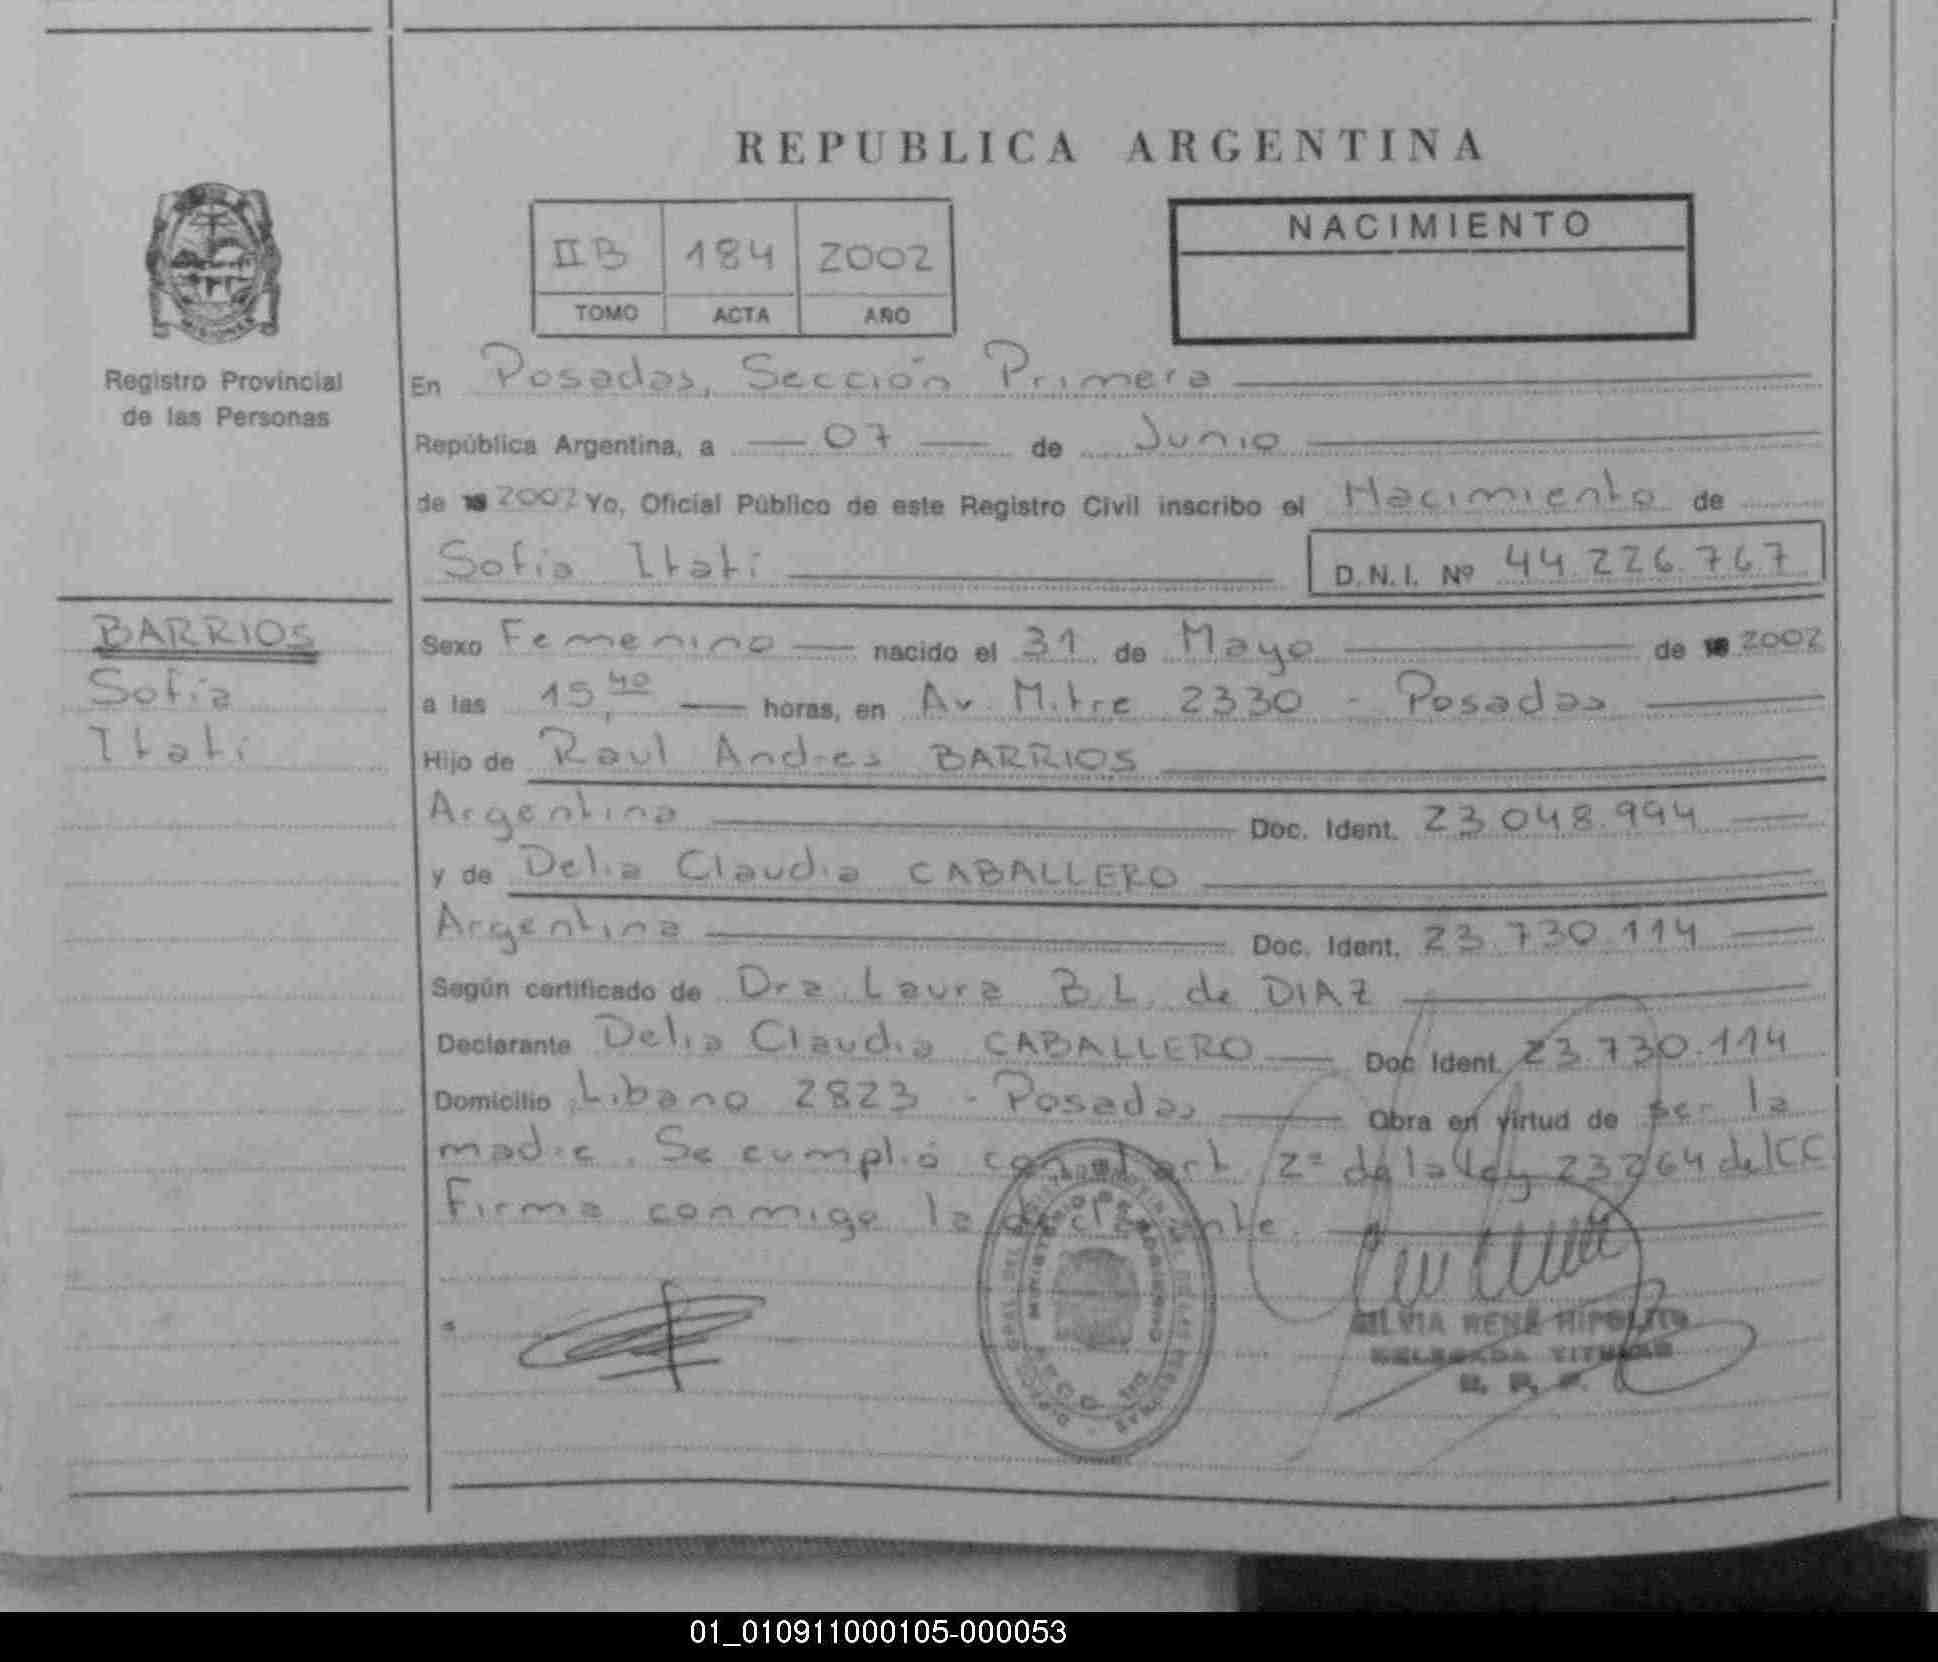 REPUBLICA ARGENTINA
NACIMIENTO
IIB 184 2002
TOMO ACTA AÑO
Registro Provincial
de las Personas
En Posadas, Sección Primera
República Argentina, a 07 de Junio
de 2002 Yo, Oficial Público de este Registro Civil inscribo el Nacimiento de
Sofía Itatí D.N.I. Nº 44.226.767
BARRIOS
Sofía
Itatí
Sexo Femenino nacido el 31 de Mayo de 2002
a las 15,40 horas, en Av. Mitre 2330 - Posadas
Hijo de Raul Andres BARRIOS
Argentina Doc. Ident. 23.048.994
y de Delia Claudia CABALLERO
Argentina Doc. Ident. 23.730.114
Según certificado de Dra. Laura B.L. de DIAZ
Declarante Delia Claudia CABALLERO Doc Ident. 23.730.114
Domicilio Libano 2823 - Posadas Obra en virtud de ser la
madre. Se cumplió con el art. 2º de la ley 23264 del CC
Firma conmigo la declarante.
SILVIA RENÉ HIPOLITO
DELEGADA TITULAR
R. P. P.
01_010911000105-000053